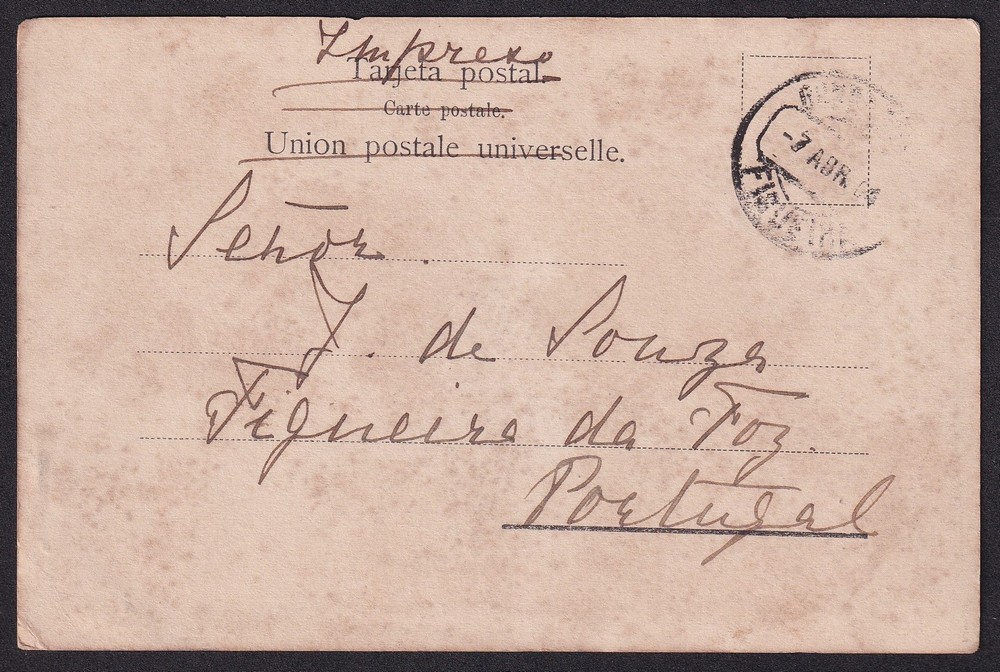 Impreso
Tarjeta postal.
Carte postale.
Union postale universelle.
-7 ABR. 04
FIGUEIRA
Señor.
J. de Souza
Figueira da Foz.
Portugal